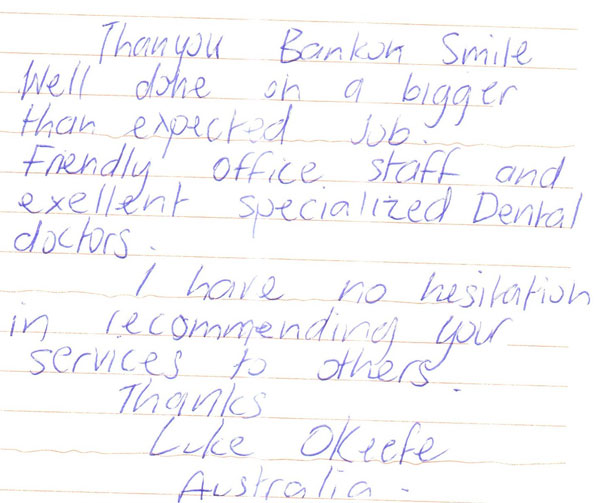 Thanyou Bankok Smile
Well done on a bigger
than expected job.
Friendly office staff and
exellent specialized Dental
doctors.
I have no hesitation
in recommending your
services to others.
Thanks
Luke OKeefe
Australia.